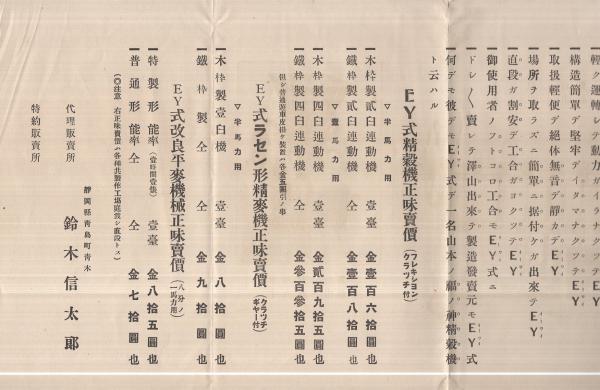 軽ク運転シテ動力ガイラナクツテEY
構造簡單デ堅牢デイタマナクツテEY
取扱軽便デ絶体無音デ静カデEY
場所ヲ取ラズニ簡單ニ据付ケガ出來テEY
直段ガ割安デ工合ガヨクツテEY
御使用者ノフトコロ工合モEY式ニ
ドレ〱賣レテ澤山出來テ製造發賣元モEY式
何デモ彼デモEY式デ一名山本ノ福ノ神精穀機
ト云ハル
EY式精穀機正味賣價(フレキション クラツチ付)
▽半馬力用
木枠製貳臼連動機 壹臺 金壹百六拾圓也
鐵枠製貳臼連動機 仝 金壹百八拾圓也
▽壹馬力用
木枠製四臼連動機 壹臺 金貳百九拾五圓也
鐵枠製四臼連動機 仝 金參百參拾五圓也
但シ普通遊車皮掛ケ裝置ハ各金五圓引ノ事
EY式ラセン形精麥機正味賣價(クラツチ ギヤー付)
▽半馬力用
木枠製壹臼機 壹臺 金八拾圓也
鐵枠製仝 仝 金九拾圓也
EY式改良平麥機械正味賣價(八分ノ一馬力用)
特製形能率(壹時間壹俵) 壹臺 金八拾五圓也
普通形能率仝 仝 金七拾圓也
(◎注意 右正味賣價ハ各種共製作工場庭渡シ直段トス)
代理販賣所
特約販賣所
靜岡縣靑島町靑木
鈴木信太郎